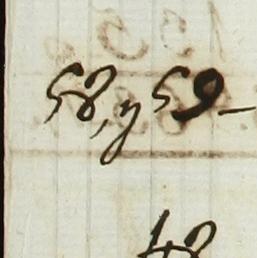 58, y 59-
48